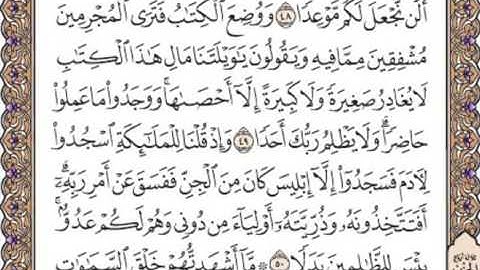 أَلَّن نَّجْعَلَ لَكُم مَّوْعِدًا ٤٨ وَوُضِعَ ٱلْكِتَٰبُ فَتَرَى ٱلْمُجْرِمِينَ
مُشْفِقِينَ مِمَّا فِيهِ وَيَقُولُونَ يَٰوَيْلَتَنَا مَالِ هَٰذَا ٱلْكِتَٰبِ
لَا يُغَادِرُ صَغِيرَةً وَلَا كَبِيرَةً إِلَّآ أَحْصَىٰهَا ۚ وَوَجَدُوا۟ مَا عَمِلُوا۟
حَاضِرًا ۗ وَلَا يَظْلِمُ رَبُّكَ أَحَدًا ٤٩ وَإِذْ قُلْنَا لِلْمَلَٰٓئِكَةِ ٱسْجُدُوا۟
لِءَادَمَ فَسَجَدُوٓا۟ إِلَّآ إِبْلِيسَ كَانَ مِنَ ٱلْجِنِّ فَفَسَقَ عَنْ أَمْرِ رَبِّهِۦٓ ۗ
أَفَتَتَّخِذُونَهُۥ وَذُرِّيَّتَهُۥٓ أَوْلِيَآءَ مِن دُونِى وَهُمْ لَكُمْ عَدُوٌّۢ ۚ
بِئْسَ لِلظَّٰلِمِينَ بَدَلًا ٥٠ ۞ مَّآ أَشْهَدتُّهُمْ خَلْقَ ٱلسَّمَٰوَٰتِ